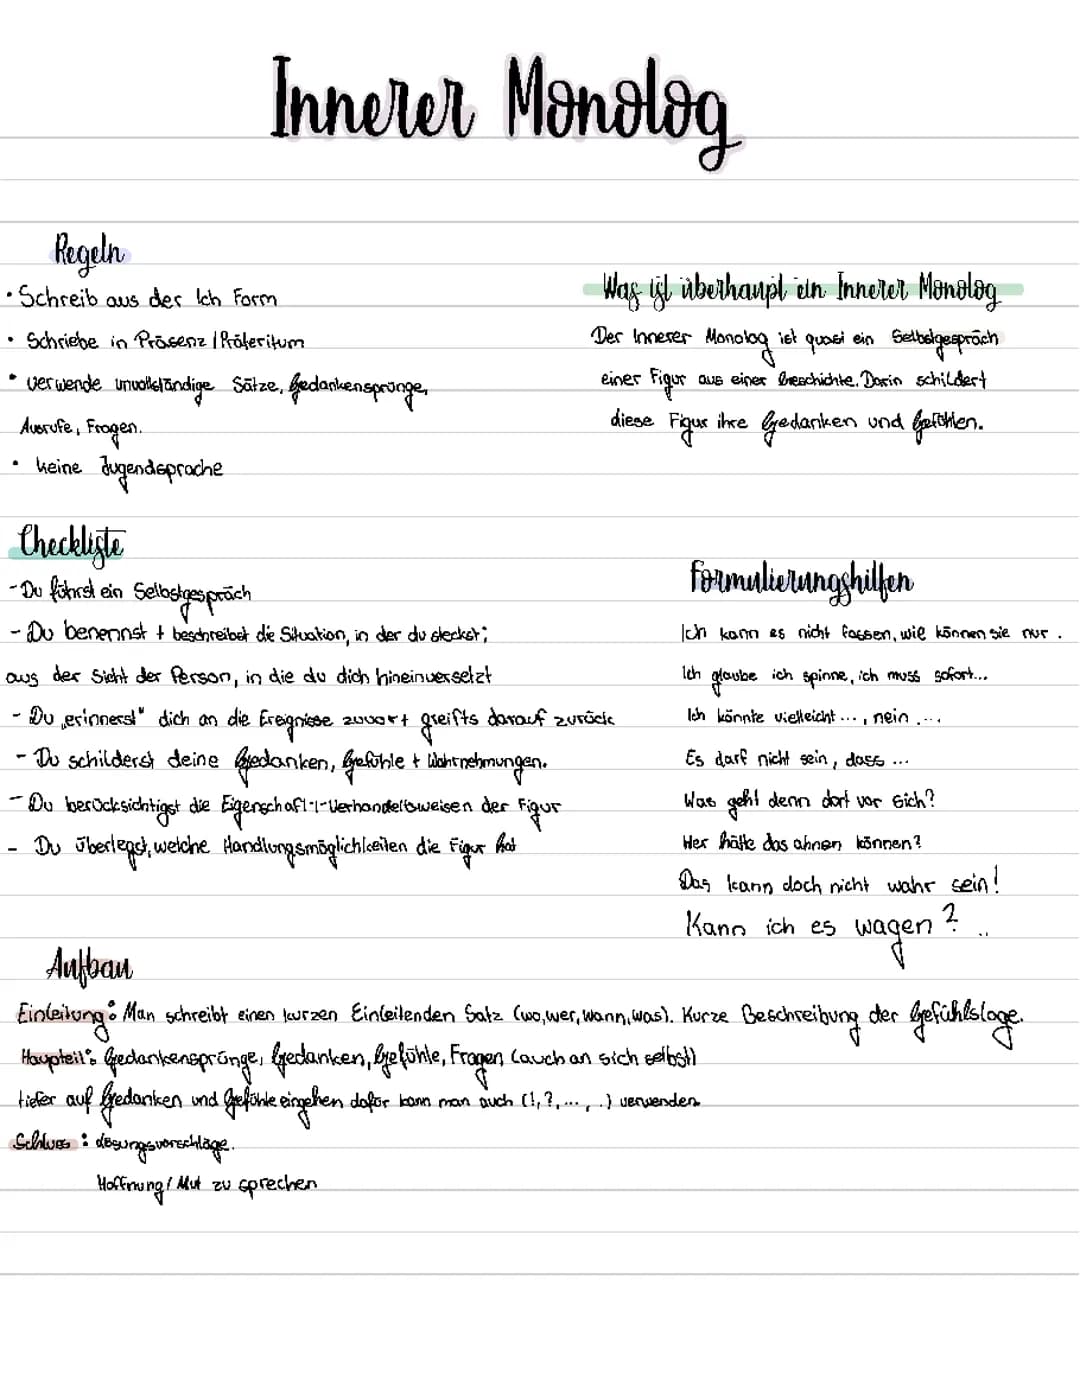 Innerer Monolog
Regeln
• Schreib aus der Ich Form
• Schriebe in Präsenz / Präteritum
• verwende unvollständige Sätze, Gedankensprünge,
Ausrufe, Fragen.
• keine Jugendsprache
Was ist überhaupt ein Innerer Monolog
Der Innerer Monolog ist quasi ein Selbstgespräch
einer Figur aus einer Geschichte. Darin schildert
diese Figur ihre Gedanken und Gefühlen.
Checkliste
- Du führst ein Selbstgespräch
- Du benennst + beschreibst die Situation, in der du steckst;
aus der Sicht der Person, in die du dich hineinversetzt
- Du „erinnerst" dich an die Ereignisse zuvort greifts darauf zurück
- Du schilderst deine Gedanken, Gefühle + Wahrnehmungen.
- Du berücksichtigst die Eigenschaft-/-Verhandeltsweisen der Figur
- Du überlegst, welche Handlungsmöglichkeiten die Figur hat
Formulierungshilfen
Ich kann es nicht fassen, wie können sie nur .
Ich glaube ich spinne, ich muss sofort...
Ich könnte vielleicht ..., nein ....
Es darf nicht sein, dass ...
Was geht denn dort vor sich?
Wer hätte das ahnen können?
Das kann doch nicht wahr sein!
Kann ich es wagen? ..
Aufbau
Einleitung: Man schreibt einen kurzen Einleitenden Satz (wo, wer, wann, was). Kurze Beschreibung der Gefühlslage.
Haupteil: Gedankensprünge, Gedanken, Gefühle, Fragen (auch an sich selbst)
tiefer auf Gedanken und Gefühle eingehen dafür kann man auch (!, ?, ..., .) verwenden
Schluss: lösungsvorschläge.
Hoffnung / Mut zu sprechen